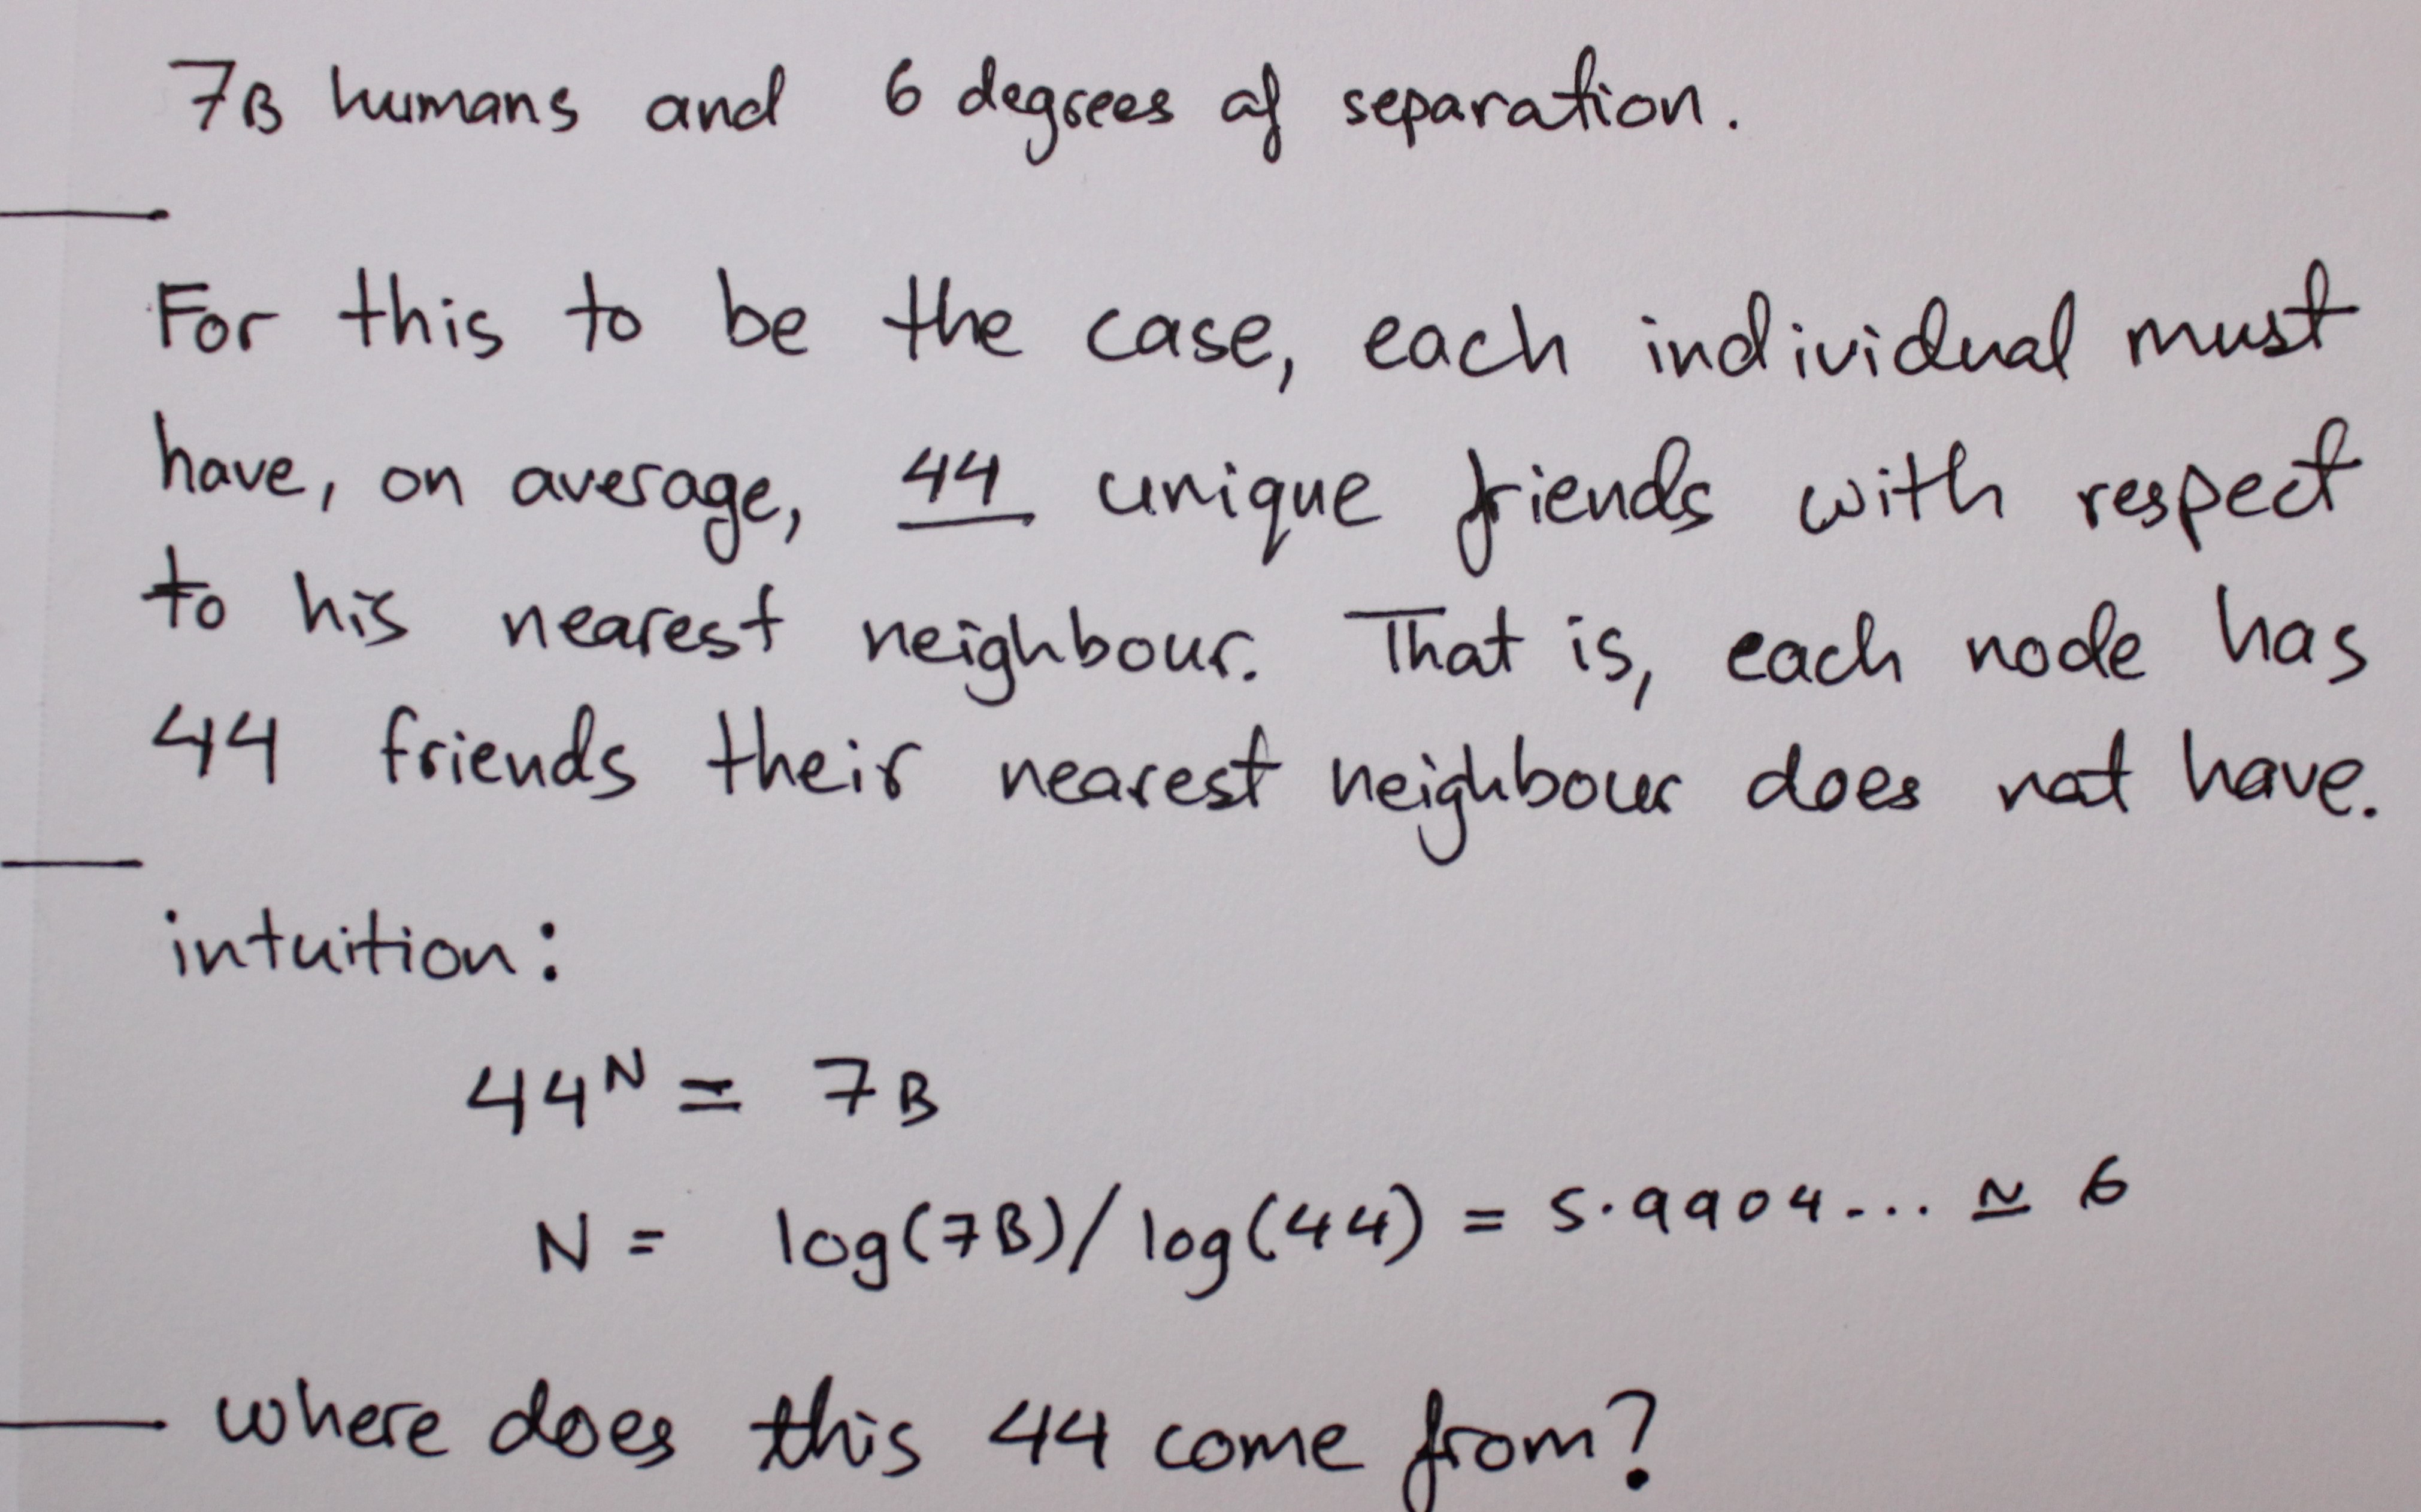 7B humans and 6 degrees of separation.
For this to be the case, each individual must
have, on average, 44 unique friends with respect
to his nearest neighbour. That is, each node has
44 friends their nearest neighbour does not have.
intuition:
44^N = 7B
N = log(7B)/log(44) = 5.9904... ≃ 6
where does this 44 come from?